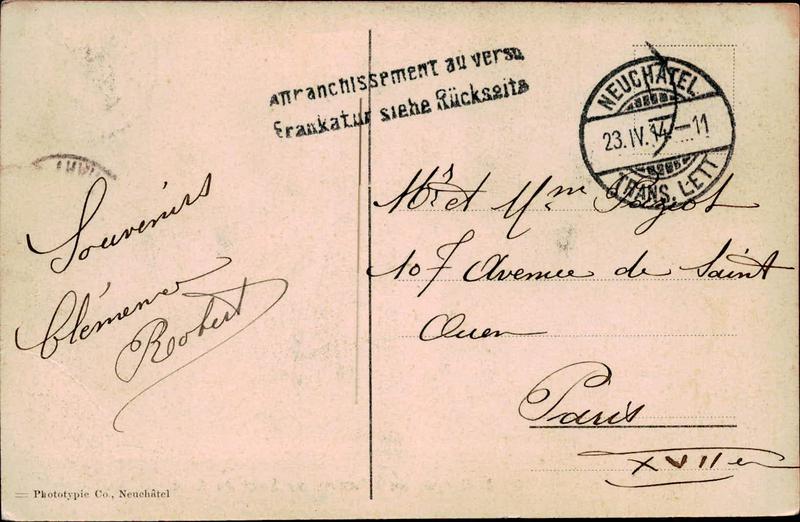 Affranchissement au verso
Frankatur siehe Rückseite
NEUCHATEL
23.IV.14-11
TRANS. LETT
Souvenirs
Clémence
Robert
Mr et Mme
107 Avenue de Saint
Ouen
Paris
XVIIe
Phototypie Co., Neuchâtel